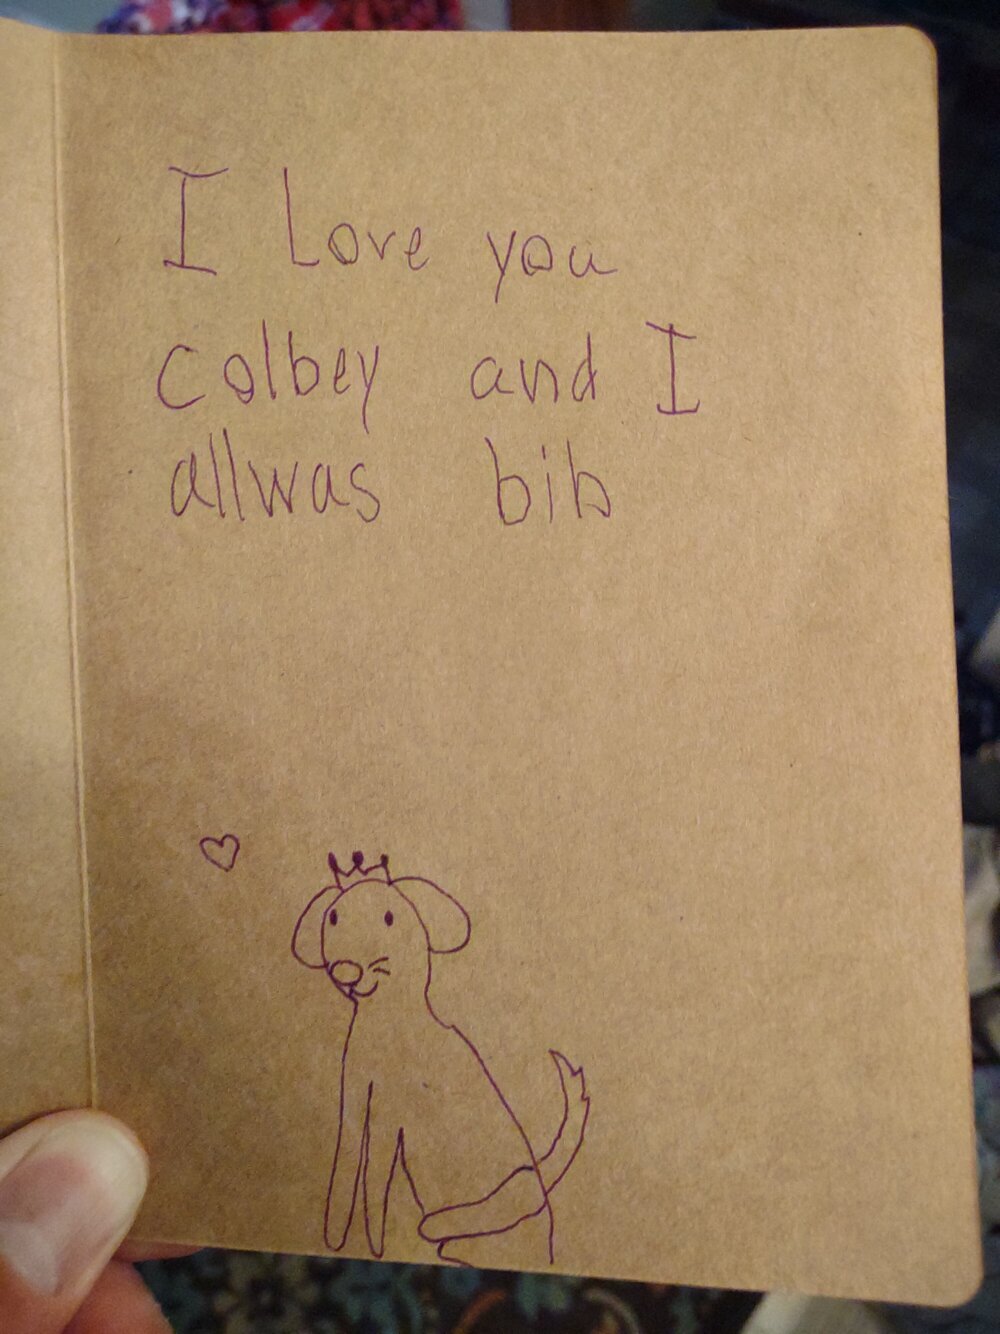 I Love you
colbey and I
allwas bib